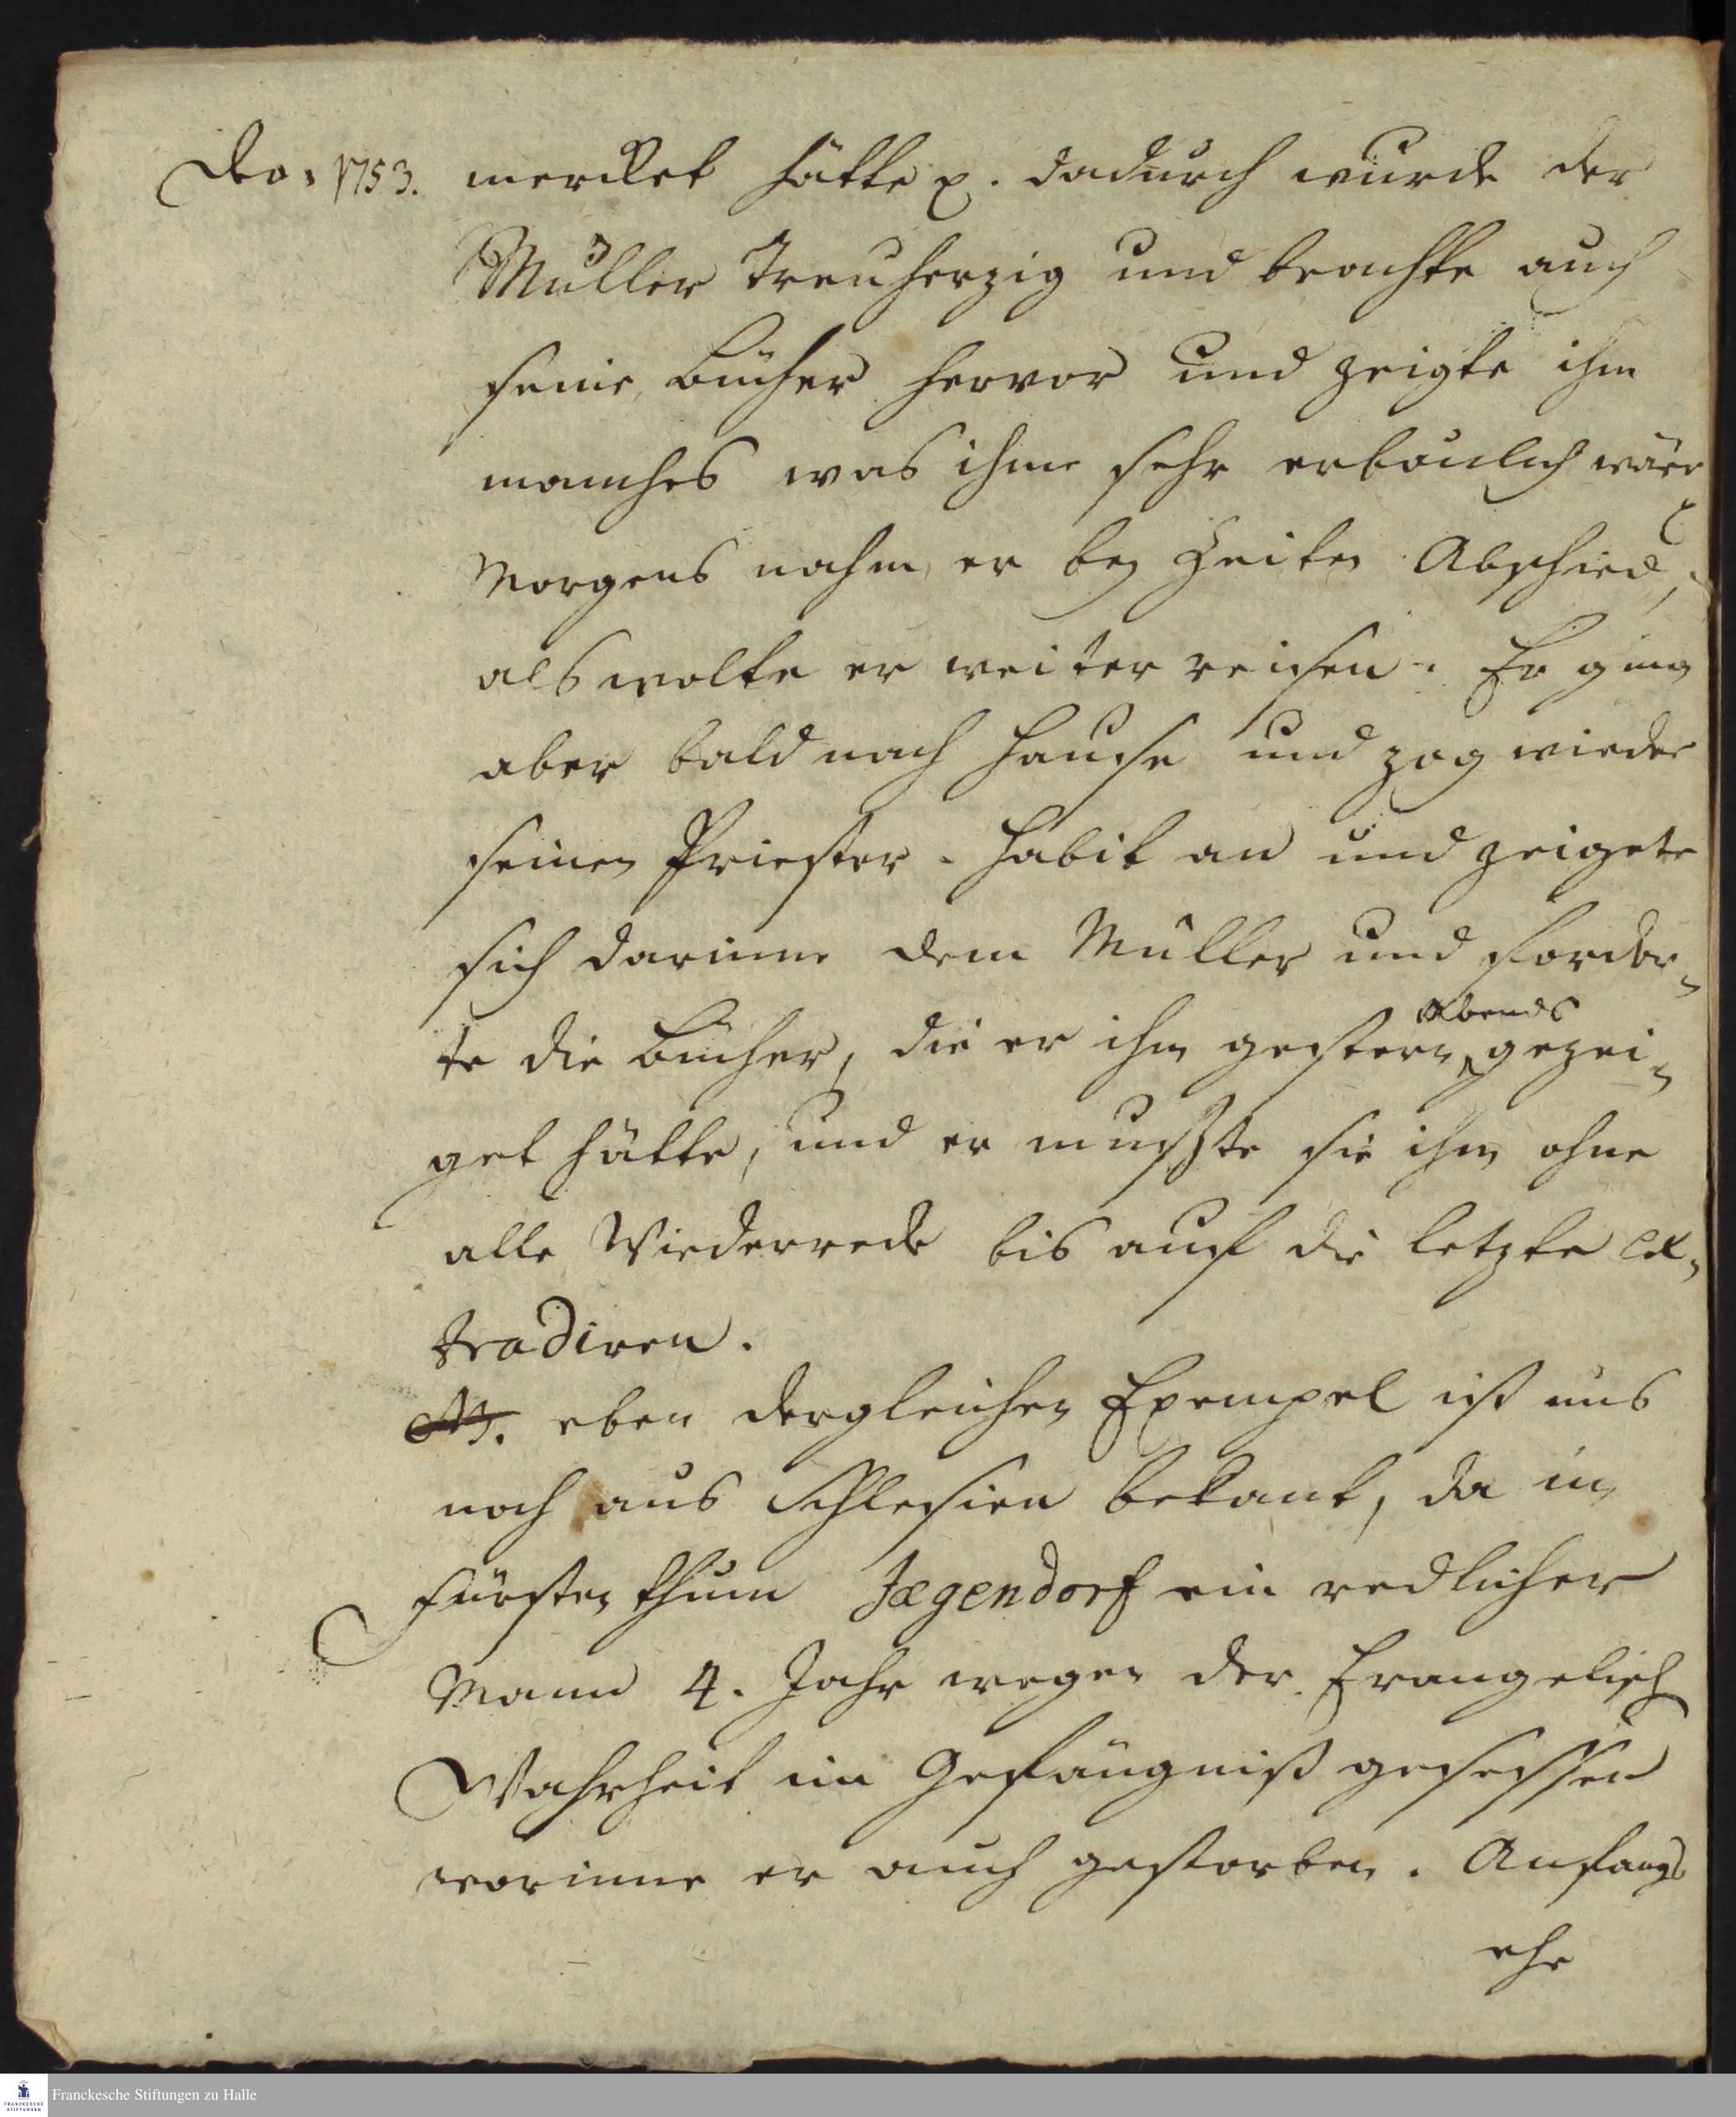 Dec. 1753. mercket hätte p. dadurch wurde der
Müller treuherzig und brachte auch
seine Bücher hervor und zeigte ihm
manches was ihme sehr erbaulich wäre
Morgens nahm er bey Zeiten Abschied,
als wolte er weiter reisen. Er ging
aber bald nach Hause und zog wieder
seinen Priester-Habit an und zeigete
sich darinne dem Müller und forder-
te die Bücher, die er ihm gestern Abends gezei-
get hätte, und er muste sie ihm ohne
alle Wiederrede bis auf die letzte ex-
tradiren.
eben dergleichen Exempel ist uns
noch aus Schlesien bekant, da in
Fürstenthum Jægendorf ein redlicher
Mann 4. Jahr wegen der Evangelisch
Wahrheit im Gefängniß gesessen
worinne er auch gestorben. Anfangs
ehe
Franckesche Stiftungen zu Halle